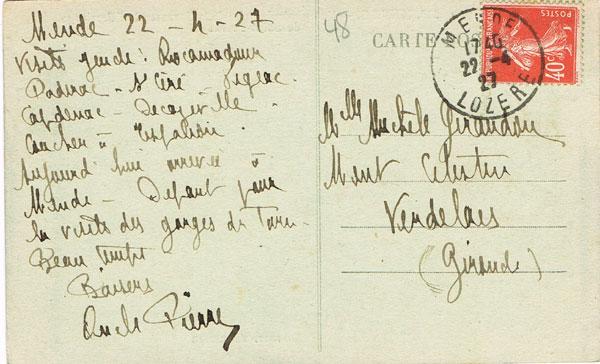 Mende 22 - 4 - 27
Rocamadour
Padirac - St Céré Figeac -
Capdenac - Decazeville -
Coucher à Espalion.
Aujourd'hui arrivée à
Mende - Depart pour
la visite des gorges du Tarn -
Beau temps
Baisers
Oncle Pierre
48
CARTE POS
MENDE
17
22 - 4
27
LOZERE
POSTES
40c
Mlle Michèle Girandou
Mont Célestin
Verdelais
(Gironde)